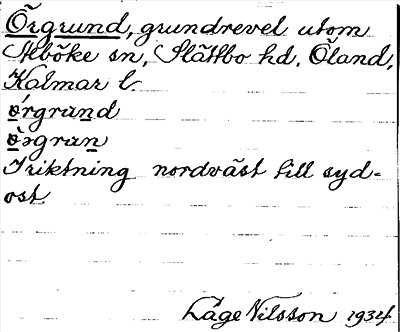 Örgrund, grundrevel utom
Alböke sn, Slättbo hd. Öland,
Kalmar l.
ørgrand
øgran
I riktning nordväst till syd-
ost
Låge Nilsson 1934